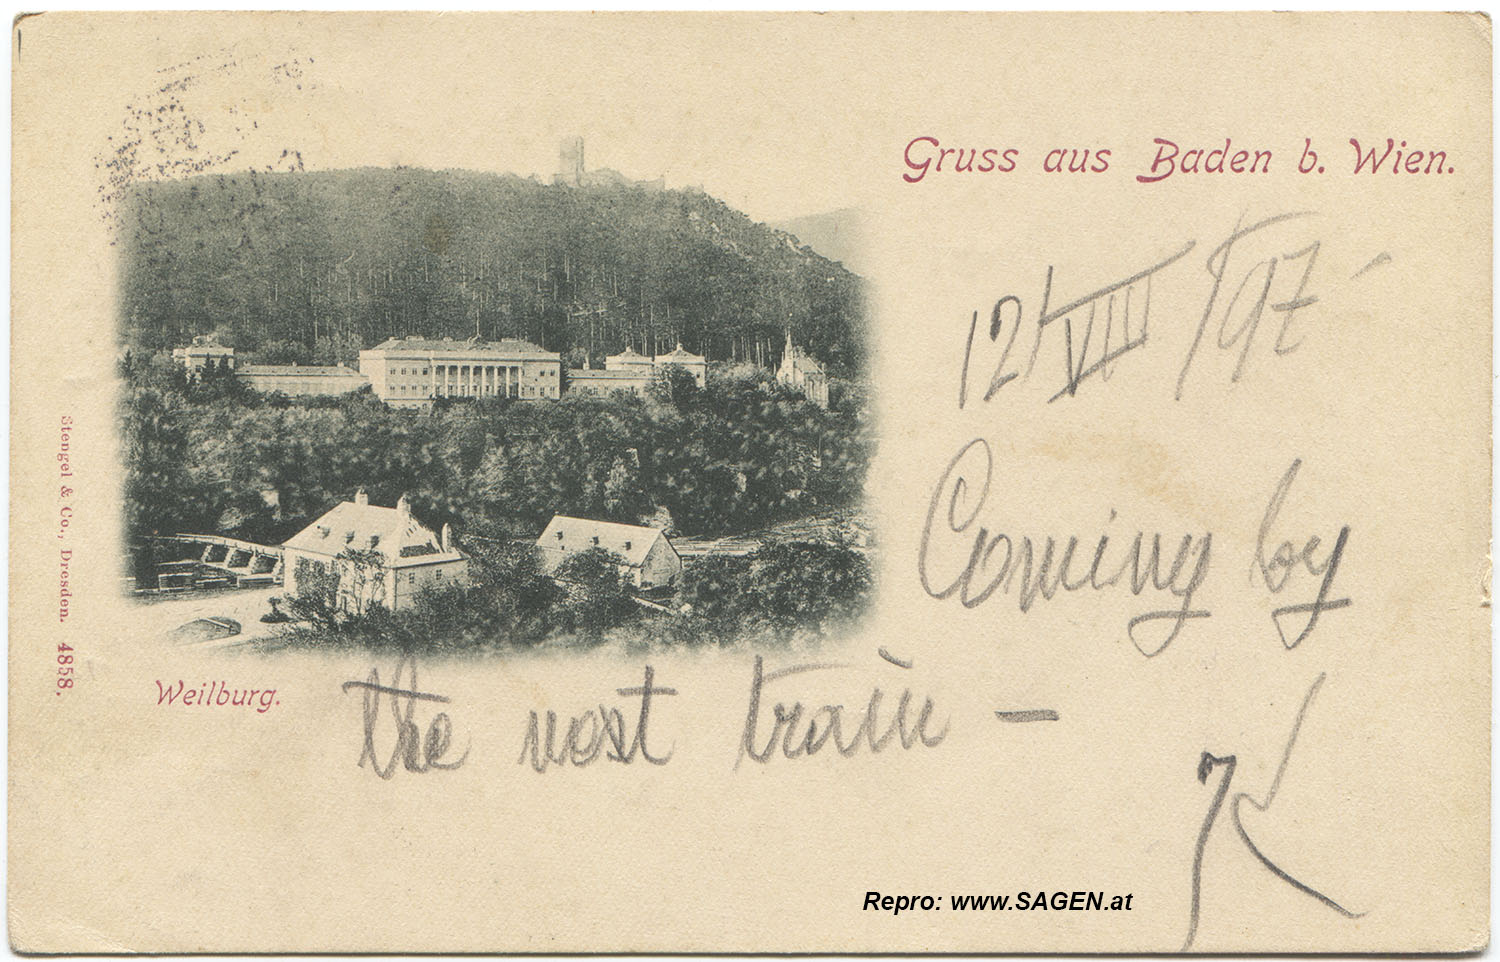 Gruss aus Baden b. Wien.
12/VIII/97
Coming by
the next train –
K
Weilburg.
Stengel & Co., Dresden. 4858.
Repro: www.SAGEN.at